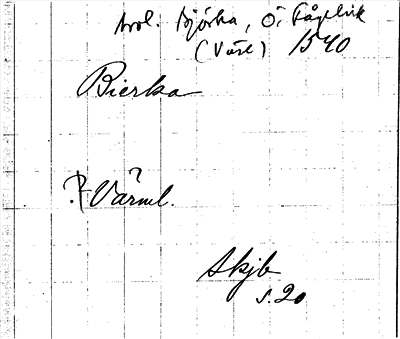 trol. Björka, Ö. Fågelvik
(Väse) 1540
Bierka
? Värml.
Skjb
s. 20